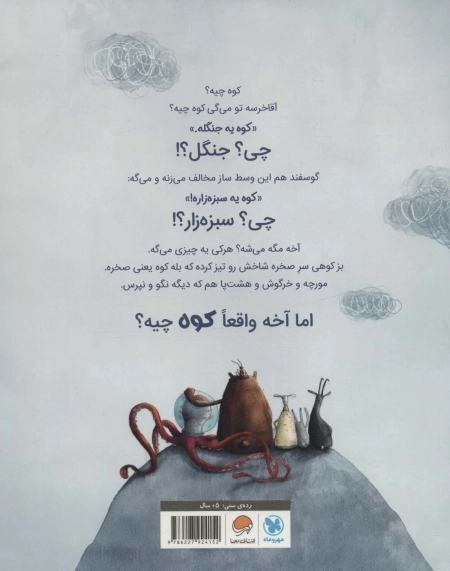 کوه چیه؟
آقاخرسه تو می‌گی کوه چیه؟
«کوه یه جنگله.»
چی؟ جنگل؟!
گوسفند هم این وسط ساز مخالف می‌زنه و می‌گه:
«کوه یه سبزه‌زاره!»
چی؟ سبزه‌زار؟!
آخه مگه می‌شه؟ هرکی یه چیزی می‌گه.
بز کوهی سرِ صخره شاخش رو تیز کرده که بله کوه یعنی صخره.
مورچه و خرگوش و هشت‌پا هم که دیگه نگو و نپرس.
اما آخه واقعاً کوه چیه؟
رده‌ی سنی: ۵+ سال
مهروماه
9 786227 924152